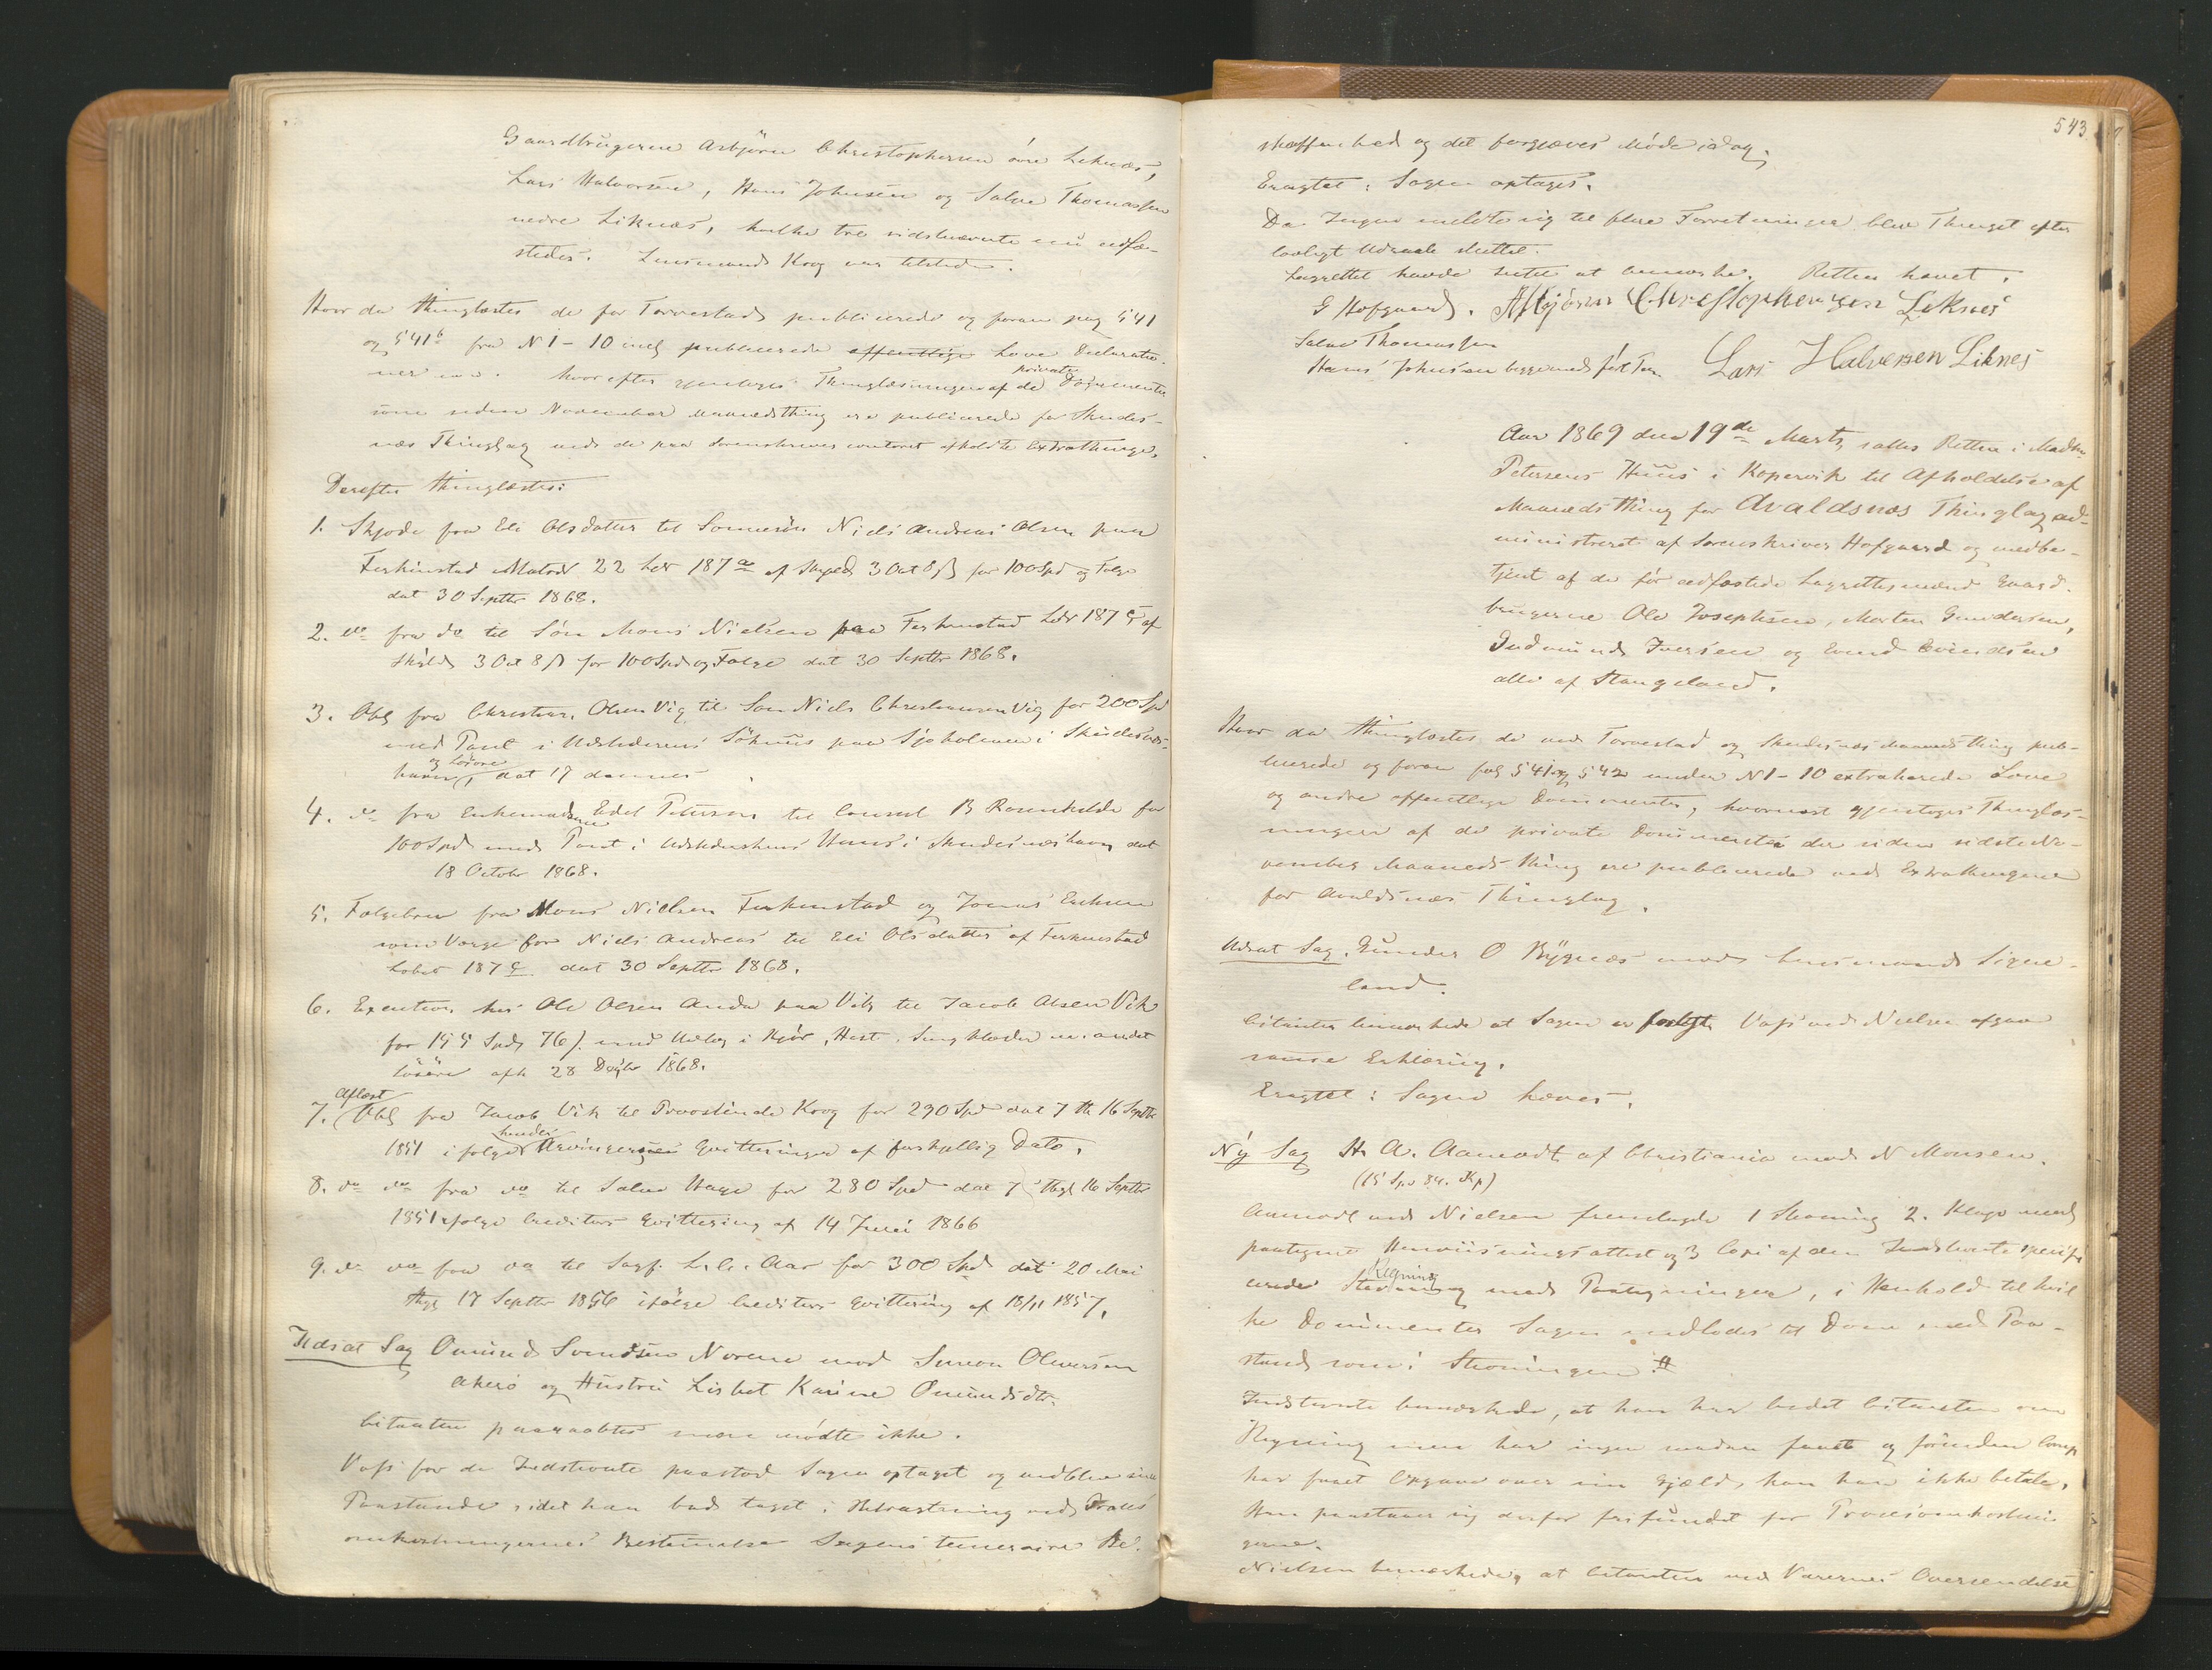 Gaardbrugerne Asbjørn Christophersen øvre Liknæs,
Lars Halvorsen, Hans Johnsen og Salve Thomassen
nedre Liknæs, hvilke tre sidstnævnte nu edfæ-
stedes. Lensmand Krog var tilstede.
Hvor da thinglæstes de for Torvestad publicerede og foran pag 541
og 541b fra N 1-10 incl publicerede offentlige Love Declaratio-
ner m. v. hvorefter gjentoges Thinglæsningen af de private Documenter
som siden November Maanedsthing ere publicerede for Skudes-
næs Thinglag ved de paa Sorenskriver contoret afholdte Extrathinge.
Derefter thinglæstes:
1. Skjøde fra Eli Olsdatter til Sønnesøn Niels Andreas Olsen paa
Ferkinstad Matr 22 Lbr 187 a af Skyld 3 Ort 8 ß for 100 Spd og Følge
dat 30 Septbr 1868.
2. do fra do til Søn Mons Nielsen paa Ferkinstad Lbr 187 c af
Skyld 3 Ort 8 ß for 100 Spd og Følge dat 30 Septbr 1868.
3. Obl fra Christian Olsen Vig til Søn Niels Christiansen Vig for 200 Spd
med Pant i Udstederens Søhuus paa Sjoholmen i Skudesnæs-
havn og Løsøre, dat 17 dennes
4. do fra Enkemadame Edel Petersen til Consul B Rosenkilde for
100 Spd med Pant i Udstederskens Huus i Skudesnæshavn dat
18 Octobr 1868.
5. Følgebrev fra Mons Nielsen Ferkinstad og Jonas Eriksen
som Værge for Niels Andreas til Eli Olsdatter af Ferkinstad
Løbnr 187 c dat 30 Septbr 1868.
6. Execution hos Ole Olsen Anda paa Vik til Jacob Olsen Vik
for 155 Spd 76 ß med Udlæg i Kjør, Hest, Sengklæder m. andet
Løsøre afh 28 Decbr 1868.
Aflæst
7. Obl fra Jacob Vik til Provstinde Krog for 290 Spd dat 7 th 16 Septbr
1851 ifølge hendes Arvingers Qvitteringer af forskjellig Dato.
8. do do fra do til Salve Hage for 280 Spd dat 7 thgl 16 Septbr
1851 ifølge Creditors Qvittering af 14 Juni 1866
9. do do fra do til Sagf. L. C. Aar for 300 Spd dat 20 Mai
thgl 17 Septbr 1856 ifølge Creditors Qvittering af 18/11 1857.
Udsat Sag Omund Svendsen Norene mod Simon Oliversen
Akerø og Hustru Lisbet Karine Omundsdtr.
Citanten paaraabtes men mødte ikke.
Vass for de Indstevnte paastod Sagen optaget og vedblev sin
Paastand idet han bad taget i Betragtning ved Proces
omkostningernes Bestemmelse Sagens temeraire Be-
543
skaffenhed og det forgjæves Møde idag.
Eragtet: Sagen optages.
Da Ingen meldte sig til flere Forretninger blev Thinget efter
lovligt Udraab sluttet.
Lagrettet havde Intet at bemærke. Retten hævet.
G Hofgaard. Asbjørn Christophersen Leknes
Salve Thomassen
Hans Johnsen begge med ført Pen. Lars Halversen Liknes
Aar 1869 den 19de Marts sattes Retten i Madm.
Petersens Huus i Kopervik til Afholdelse af
Maanedsthing for Avaldsnæs Thinglag ad-
ministreret af Sorenskriver Hofgaard og medbe-
tjent af de før edfæstede Lagrettesmænd Gaard-
brugerne Ole Josephsen, Morten Gundersen,
Gudmund Iversen og Evind Evindsen
alle af Stangeland.
Hvor da thinglæstes de ved Torvestad og Skudesnæs Maanedsthing pub-
licerede og foran fol 541 og 542 under N 1-10 extraherede Love
og andre offentlige Documenter, hvornæst gjentoges Thinglæs-
ningen af de private Documenter der siden sidste No-
vember Maaneds thing ere publicerede ved Extrathingene
for Avaldsnæs Thinglag.
Udsat Sag. Gunder O Bygnæs mod Lensmand Signe-
land.
Citanten bemærkede at Sagen er forligt. Vass ved Nielsen afgav
samme Erklæring.
Eragtet: Sagen hæves.
Ny Sag H. A. Aamodt af Christiania mod N Monsen.
(15 Spd 84. Kp)
Aamodt ved Nielsen fremlagde 1 Stevning 2. Klage med
paategnet Henviisningsattest og 3 Copi af den Indstevnte specifi
cerede Regning med Paategninger, i Henhold til hvil
ke Documenter Sagen indlodes til Dom med Paa-
stand som i Stevningen.
Indstevnte bemærkede, at han har bedet Citanten om
Regning men har ingen saadan faaet og førinden Comp
har faaet Opgave over sin Gjæld, kan han ikke betale.
Han paastaaer sig derfor frifunden for Procesomkostnin
gerne.
Nielsen bemærkede, at Citanten ved Varernes Oversendelse